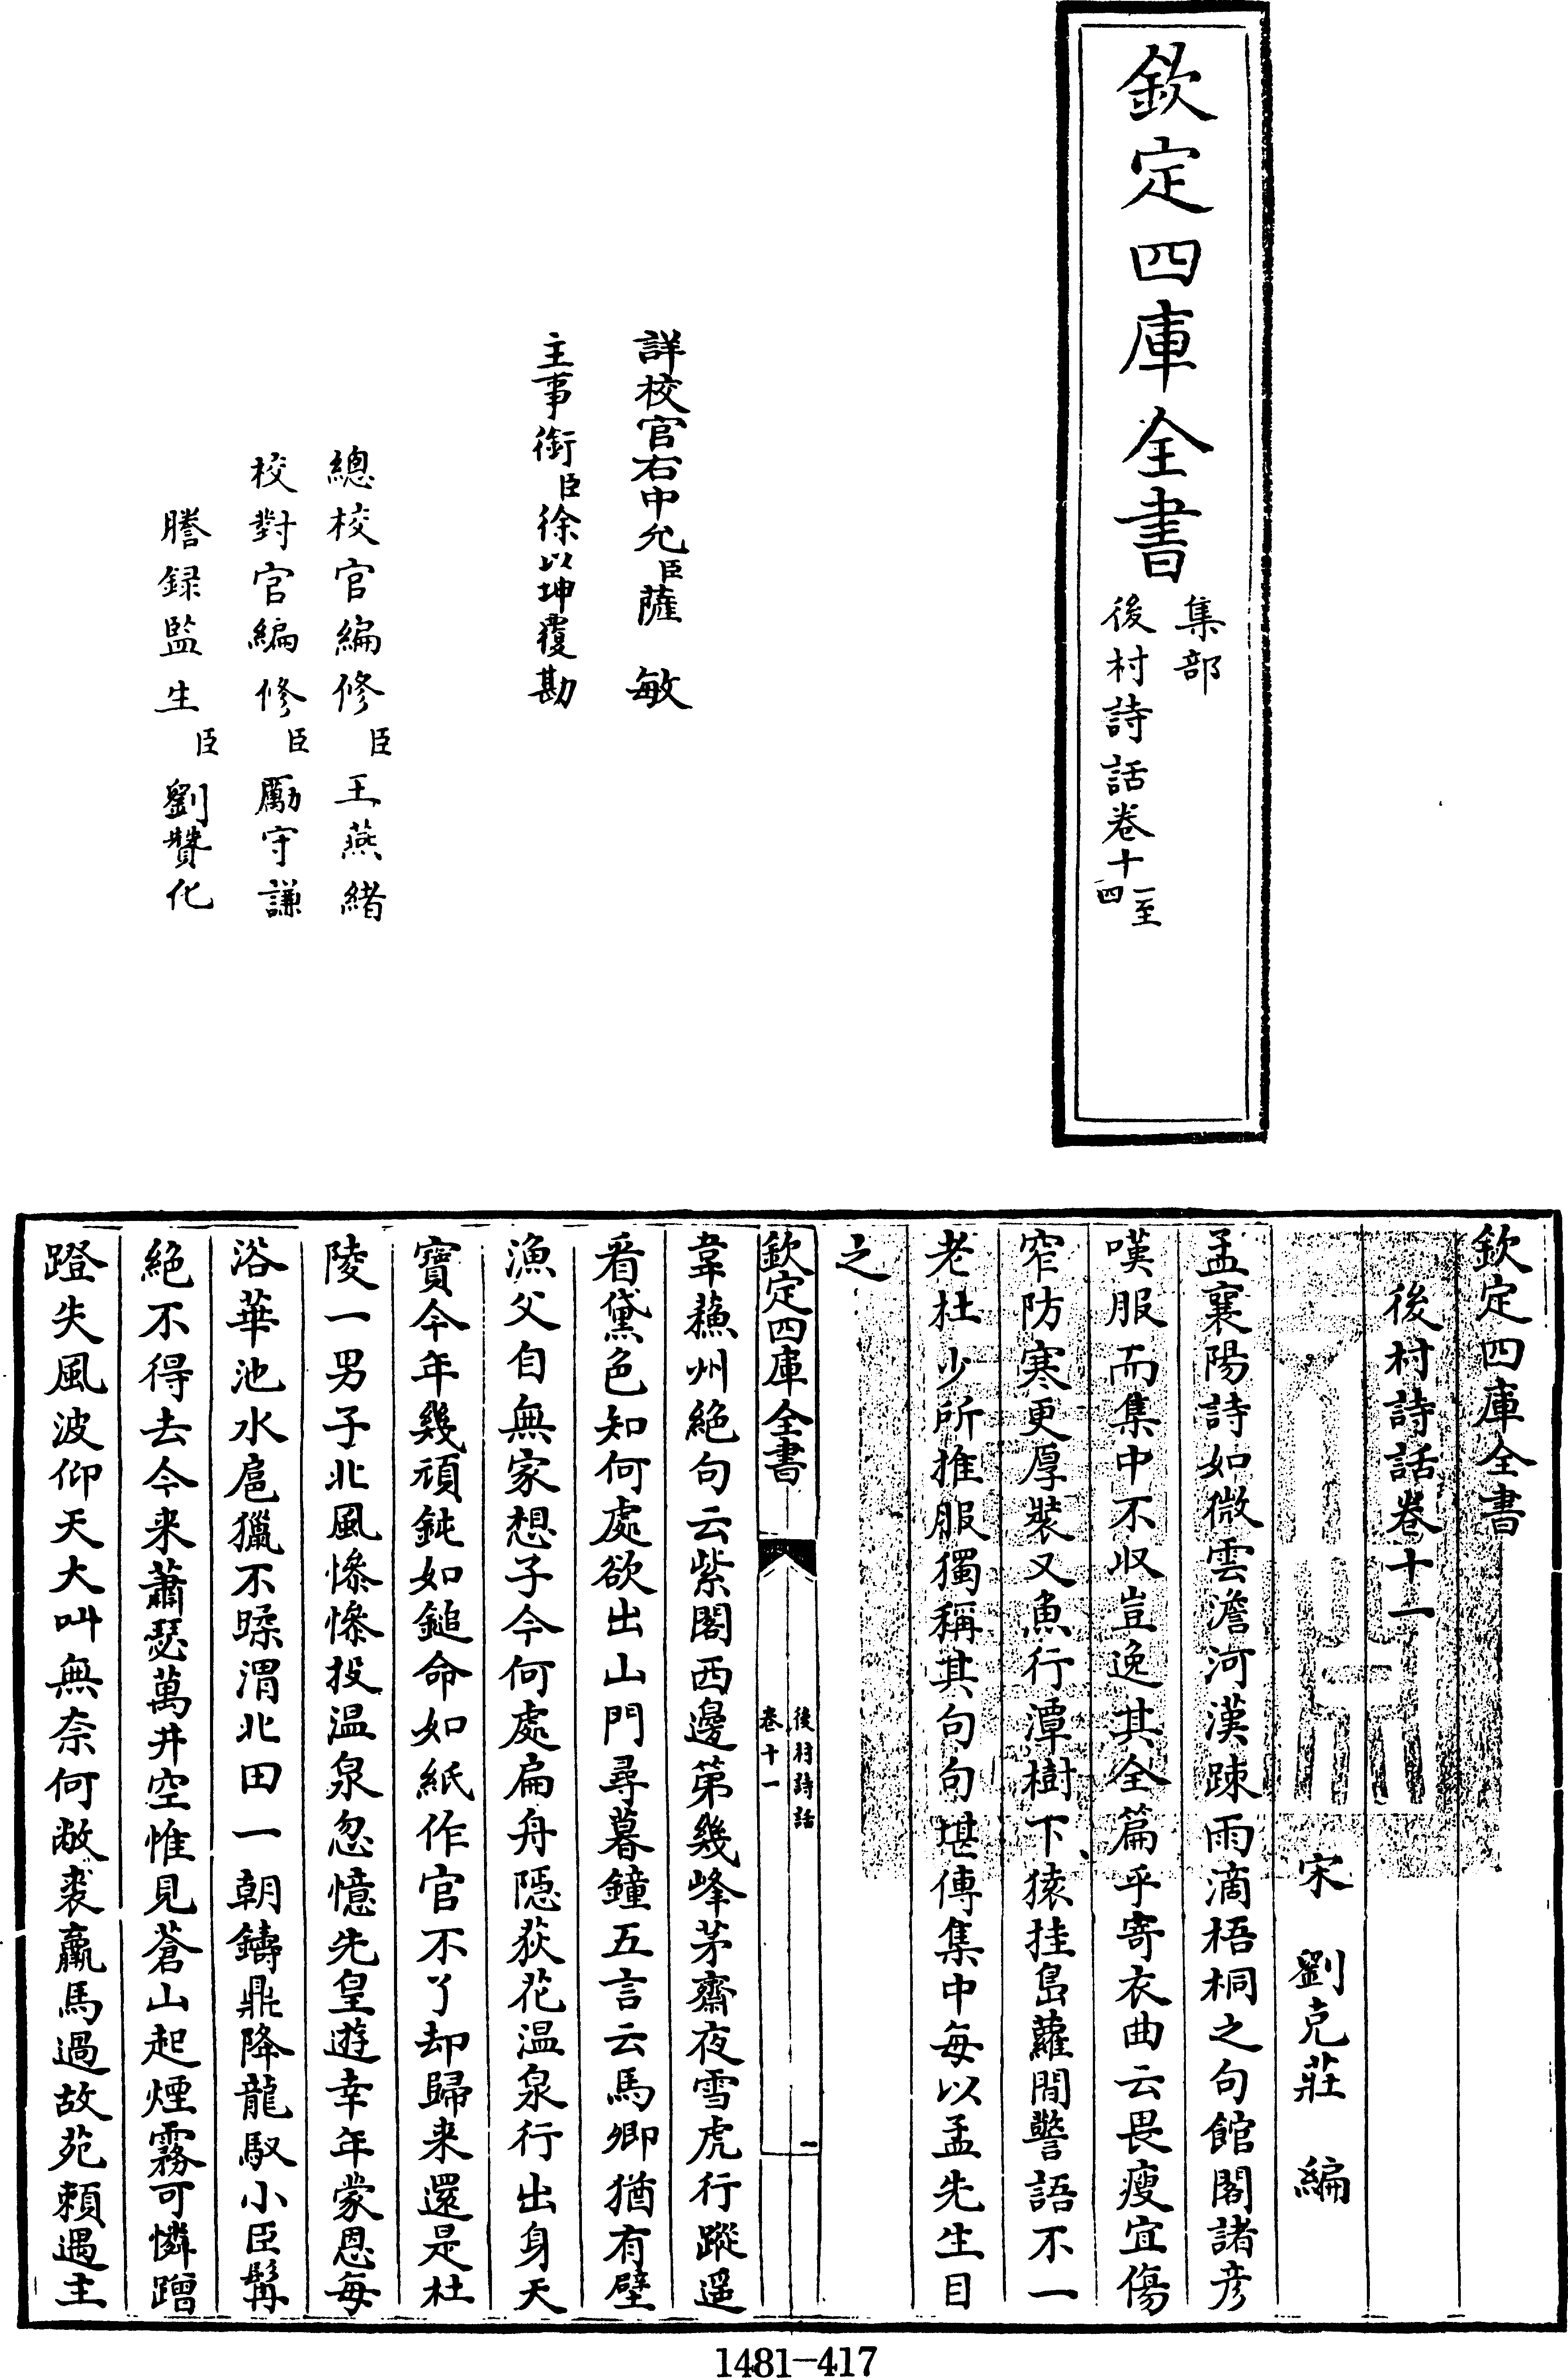 欽定四庫全書
集部
後村詩話卷十一至四
詳校官右中允臣薩敏
主事銜臣徐以坤覆勘
總校官編修臣王燕緒
校對官編修臣勵守謙
謄録監生臣劉贊化
欽定四庫全書
後村詩話卷十一
宋 劉克莊 編
孟襄陽詩如微雲澹河漢踈雨滴梧桐之句館閣諸彦
嘆服而集中不収豈逸其全篇乎寄衣曲云畏瘦宜傷
窄防寒更厚裝又魚行潭樹下猿挂島蘿間警語不一
老杜少所推服獨稱其句句堪傳集中每以孟先生目
之
欽定四庫全書
後村詩話
卷十一
一
韋蘇州絶句云紫閣西邊第幾峰茅齋夜雪虎行蹤遥
看黛色知何處欲出山門尋暮鐘五言云馬卿猶有壁
漁父自無家想子今何處扁舟隠荻花温泉行出身天
寶今年幾頑鈍如鎚命如紙作官不了却歸来還是杜
陵一男子北風慘慘投温泉忽憶先皇遊幸年蒙恩每
浴華池水扈獵不蹂渭北田一朝鑄鼎降龍馭小臣髯
絶不得去今来蕭瑟萬井空惟見蒼山起煙霧可憐蹭
蹬失風波仰天大叫無奈何敝裘羸馬過故苑頼遇主
1481-417